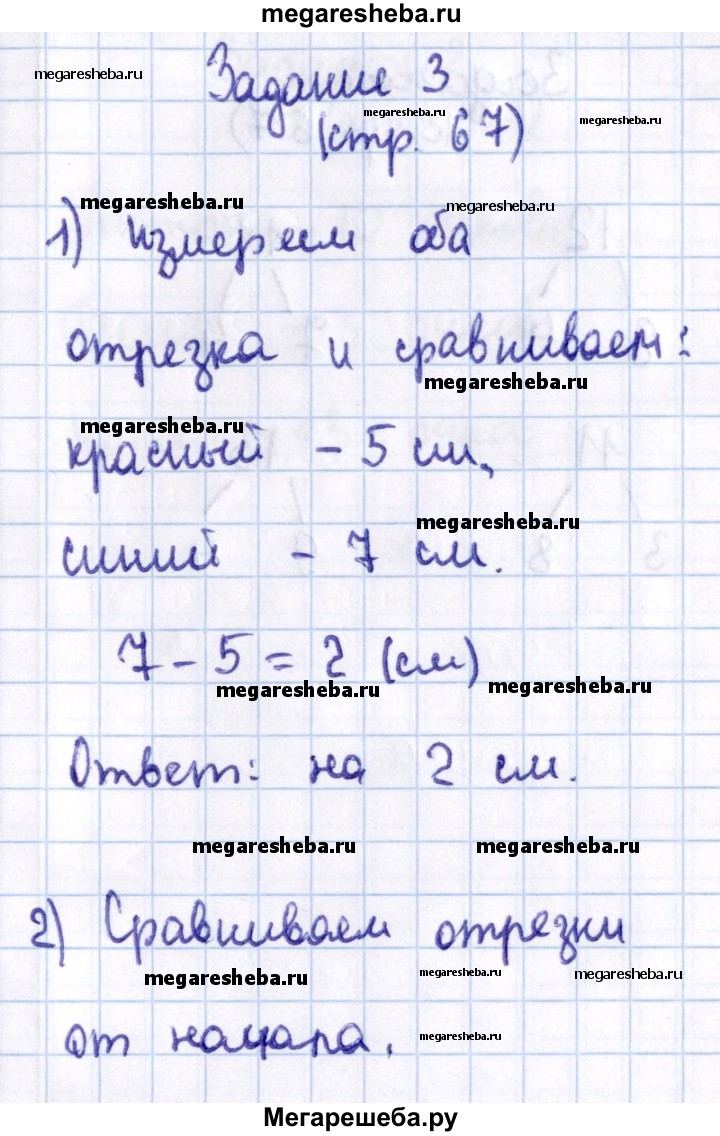 megaresheba.ru
megaresheba.ru
Задание 3
megaresheba.ru
megaresheba.ru
(стр. 67)
megaresheba.ru
megaresheba.ru
1) Измеряем оба
отрезка и сравниваем:
megaresheba.ru
megaresheba.ru
красный - 5 см,
megaresheba.ru
синий - 7 см.
megaresheba.ru
7 - 5 = 2 (см)
megaresheba.ru
megaresheba.ru
Ответ: на 2 см.
megaresheba.ru
megaresheba.ru
2) Сравниваем отрезки
megaresheba.ru
megaresheba.ru
megaresheba.ru
от начала.
megaresheba.ru
Мегарешеба.ру